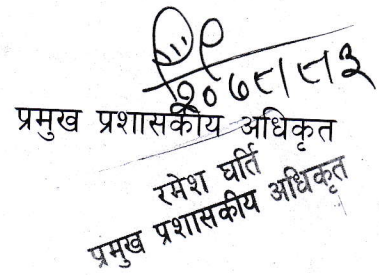 २०७८।८।३
प्रमुख प्रशासकीय अधिकृत
रमेश घर्ति
प्रमुख प्रशासकीय अधिकृत